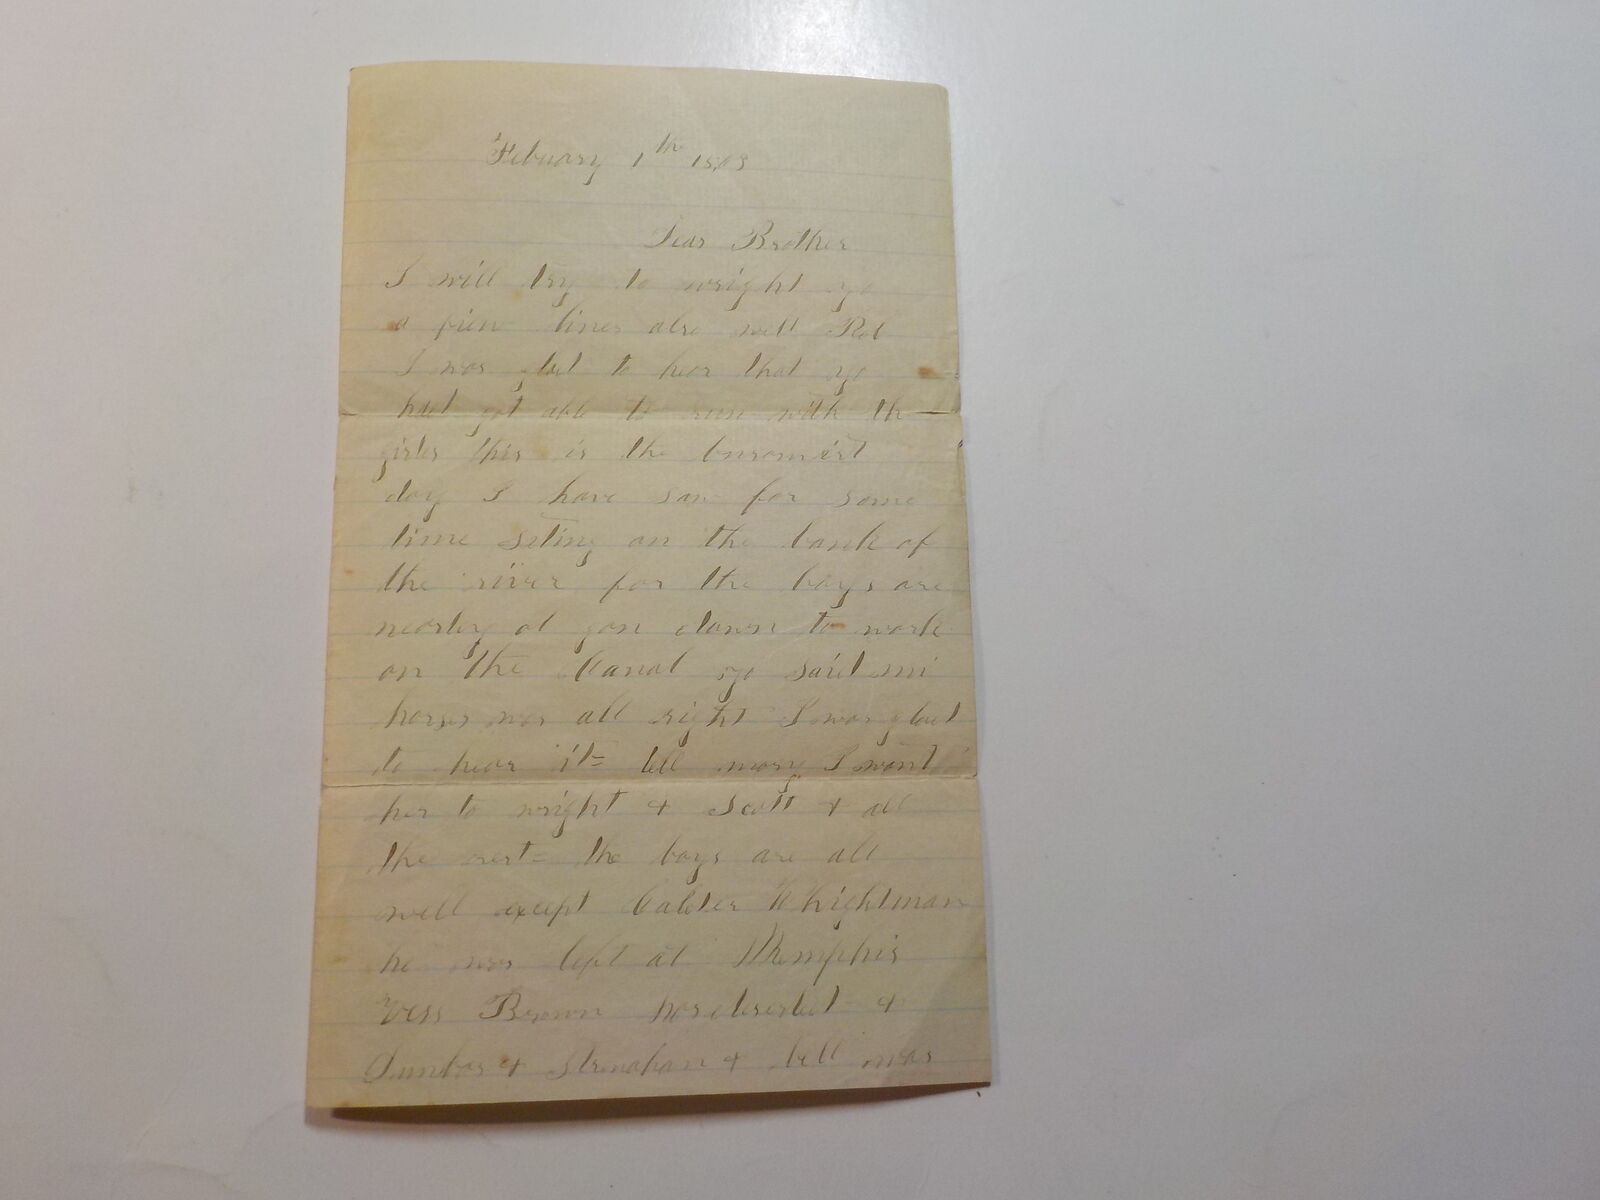 Febuary 1th 1863
Dear Brother
I will try to wright yo
a fiew lines also will Rob
I was glad to hear that yo
had got able to run with th
girls this is the
day I have saw for some
time seting on the bank of
the river for the boys are
nearley al gon down to work
on the Canal yo said mi
horses was all right I was glad
to hear it= tell mary I want
her to wright & Scott & all
the rest= the boys are all
well except Calder Whightman
he was left at Memphis
Vess Brown has deserted &
Dunbar & Strenahan & bell was